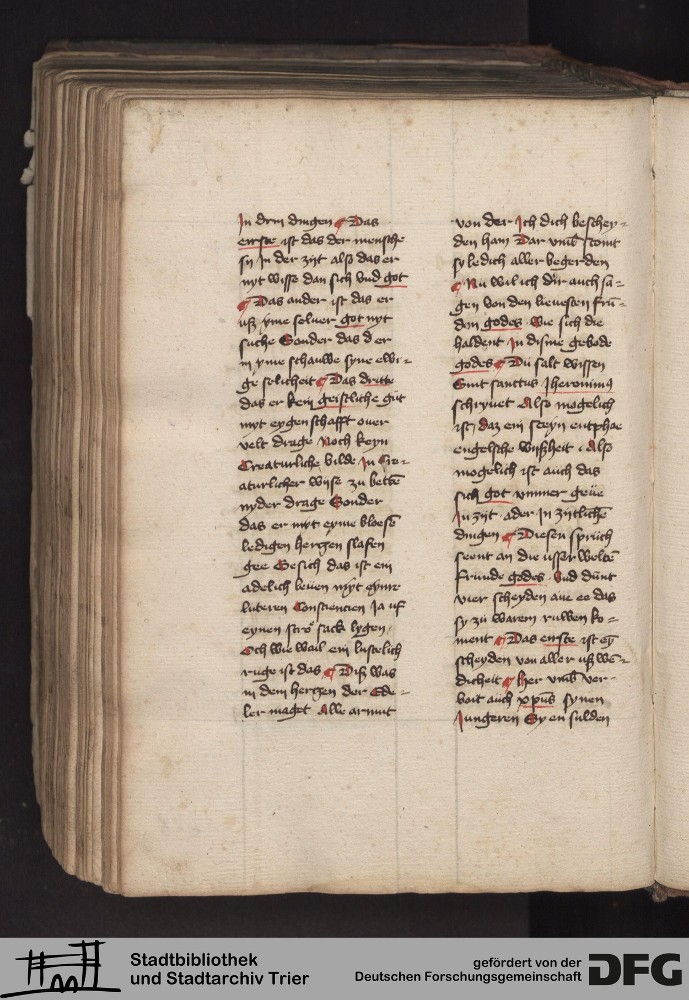 In drin dingen ¶ Das
eirste ist das der mensche
sy In der zijt alß das er
nyt wisse dan sich vnd got
¶ Das ander ist das er
uß yme seluer got nyt
suche Sonder das der
in yme schauwe syne ewi=
ge selicheit ¶ Das dritte
das er kein geistliche gut
myt eygenschafft ouer
velt drage Noch keyn
Creaturliche bilde In Cre=
aturlicher wijse zu bette
nyder drage Sonder
das er myt eyme bloesē
ledigen hertzen slafen
gee Besich das ist ein
adelich leuen myt eynre
luteren Consciencien Ia uf
eynen stro sack lygen
Och wie wail ein lustelich
ruge ist das ¶ Diß was
in dem hertzen der Ede=
ler maget Alle armut
von der Ich dich beschey=
den han Dar vmb komt
sy ledich aller begerden
¶ Nu wil ich dir auch sa=
gen von den lieuesten frū=
den godes Wie sich die
haldent In disme gebode
godes ¶ Du salt wissen
Sint sanctus Iheronimus
schryuet Also mogelich
ist daz ein steyn entphae
engelsche wißheit Also
mogelich ist auch das
sich got ymmer geue
In zijt ader In zijtlichē
dingen ¶ Diesen spruch
seent an die usser welten
frunde godes Vnd dunt
vier scheyden aue ee das
sy zu warem ruwen ko=
ment ¶ Das eirste ist ey
scheyden von aller ußwē=
dicheit ¶ Her vmb ver=
boit auch xpus synen
Iungeren Sy en sulden
Stadtbibliothek
und Stadtarchiv Trier
gefördert von der
Deutschen Forschungsgemeinschaft
DFG